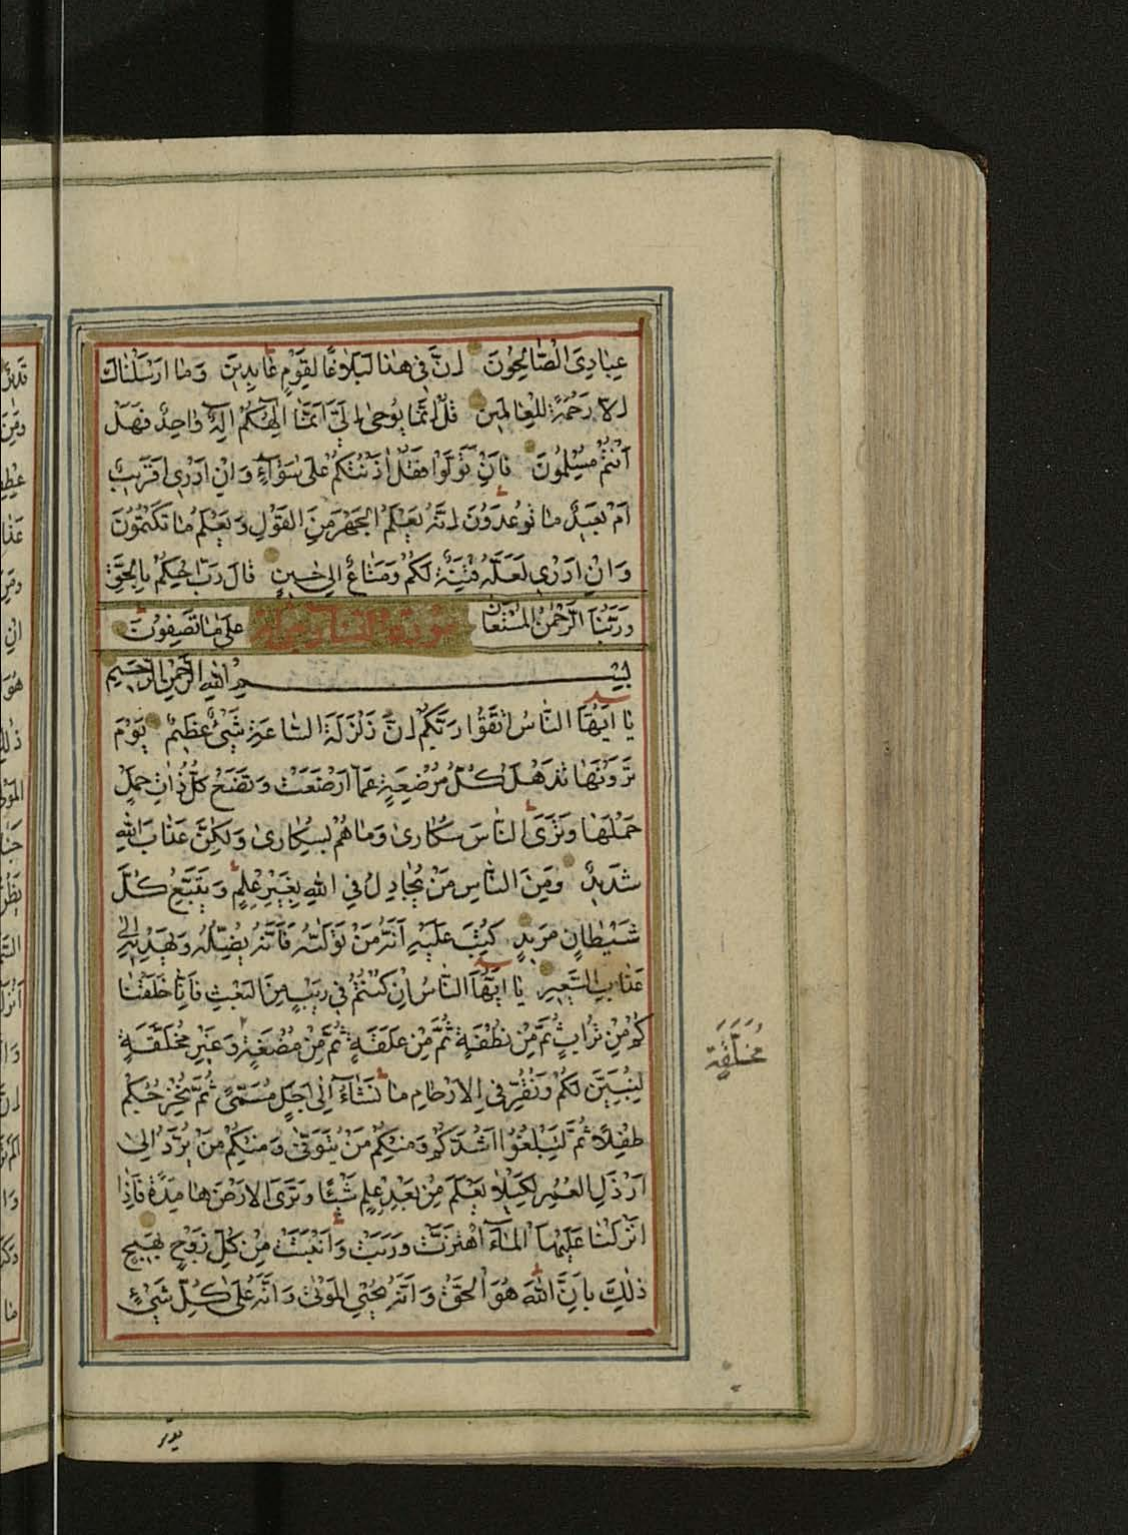 عِبَادِىَ الصَّالِحُونَ اِنَّ فِى هٰذَا لَبَلَاغًا لِقَوْمٍ عَابِدِينَ وَمَا اَرْسَلْنَاكَ
اِلَّا رَحْمَةً لِلْعَالَمِينَ قُلْ اِنَّمَا يُوحٰى اِلَىَّ اَنَّمَا اِلٰهُكُمْ اِلٰهٌ وَاحِدٌ فَهَلْ
اَنْتُمْ مُسْلِمُونَ فَاِنْ تَوَلَّوْا فَقُلْ اٰذَنْتُكُمْ عَلٰى سَوَآءٍ وَاِنْ اَدْرِى اَقَرِيبٌ
اَمْ بَعِيدٌ مَا تُوعَدُونَ اِنَّهُ يَعْلَمُ الْجَهْرَ مِنَ الْقَوْلِ وَيَعْلَمُ مَا تَكْتُمُونَ
وَاِنْ اَدْرِى لَعَلَّهُ فِتْنَةٌ لَكُمْ وَمَتَاعٌ اِلٰى حِينٍ قَالَ رَبِّ احْكُمْ بِالْحَقِّ
وَرَبُّنَا الرَّحْمٰنُ الْمُسْتَعَانُ عَلٰى مَا تَصِفُونَ
بِسْمِ اللّٰهِ الرَّحْمٰنِ الرَّحِيمِ
يَا اَيُّهَا النَّاسُ اتَّقُوا رَبَّكُمْ اِنَّ زَلْزَلَةَ السَّاعَةِ شَىْءٌ عَظِيمٌ يَوْمَ
تَرَوْنَهَا تَذْهَلُ كُلُّ مُرْضِعَةٍ عَمَّا اَرْضَعَتْ وَتَضَعُ كُلُّ ذَاتِ حَمْلٍ
حَمْلَهَا وَتَرَى النَّاسَ سُكَارٰى وَمَا هُمْ بِسُكَارٰى وَلٰكِنَّ عَذَابَ اللّٰهِ
شَدِيدٌ وَمِنَ النَّاسِ مَنْ يُجَادِلُ فِى اللّٰهِ بِغَيْرِ عِلْمٍ وَيَتَّبِعُ كُلَّ
شَيْطَانٍ مَرِيدٍ كُتِبَ عَلَيْهِ اَنَّهُ مَنْ تَوَلَّاهُ فَاَنَّهُ يُضِلُّهُ وَيَهْدِيهِ اِلٰى
عَذَابِ السَّعِيرِ يَا اَيُّهَا النَّاسُ اِنْ كُنْتُمْ فِى رَيْبٍ مِنَ الْبَعْثِ فَاِنَّا خَلَقْنَا
كُمْ مِنْ تُرَابٍ ثُمَّ مِنْ نُطْفَةٍ ثُمَّ مِنْ عَلَقَةٍ ثُمَّ مِنْ مُضْغَةٍ وَغَيْرِ مُخَلَّقَةٍ
مُخَلَّقَةٍ
لِنُبَيِّنَ لَكُمْ وَنُقِرُّ فِى الْاَرْحَامِ مَا نَشَآءُ اِلٰى اَجَلٍ مُسَمًّى ثُمَّ نُخْرِجُكُمْ
طِفْلًا ثُمَّ لِتَبْلُغُوا اَشُدَّكُمْ وَمِنْكُمْ مَنْ يُتَوَفّٰى وَمِنْكُمْ مَنْ يُرَدُّ اِلٰى
اَرْذَلِ الْعُمُرِ لِكَيْلَا يَعْلَمَ مِنْ بَعْدِ عِلْمٍ شَيْئًا وَتَرَى الْاَرْضَ هَامِدَةً فَاِذَا
اَنْزَلْنَا عَلَيْهَا الْمَآءَ اهْتَزَّتْ وَرَبَتْ وَاَنْبَتَتْ مِنْ كُلِّ زَوْجٍ بَهِيجٍ
ذٰلِكَ بِاَنَّ اللّٰهَ هُوَ الْحَقُّ وَاَنَّهُ يُحْيِى الْمَوْتٰى وَاَنَّهُ عَلٰى كُلِّ شَىْءٍ